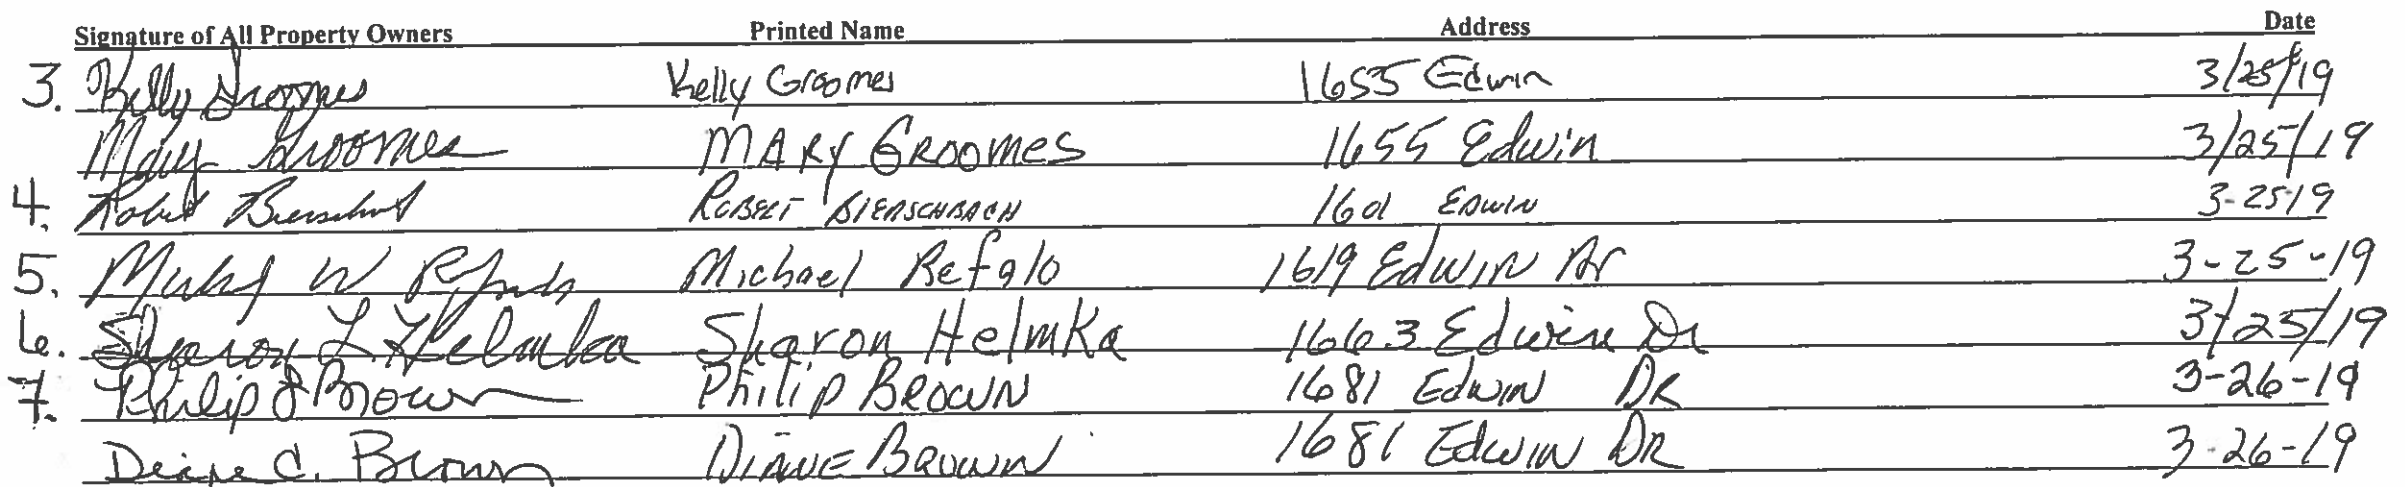 Signature of All Property Owners Printed Name Address Date
3. Kelly Groomes Kelly Groomes 1655 Edwin 3/25/19
Mary Groomes MARY GROOMES 1655 Edwin 3/25/19
4. Robert Bierschbach ROBERT BIERSCHBACH 1601 EDWIN 3-25-19
5. Michael W Refalo Michael Refalo 1619 EdwIN Dr 3-25-19
6. Sharon L. Helmka Sharon Helmka 1663 Edwin Dr 3/25/19
7. Philip J Brown Philip BROWN 1681 EdwIN DR 3-26-19
Diane C. Brown DIANE BROWN 1681 EdwIN DR 3-26-19